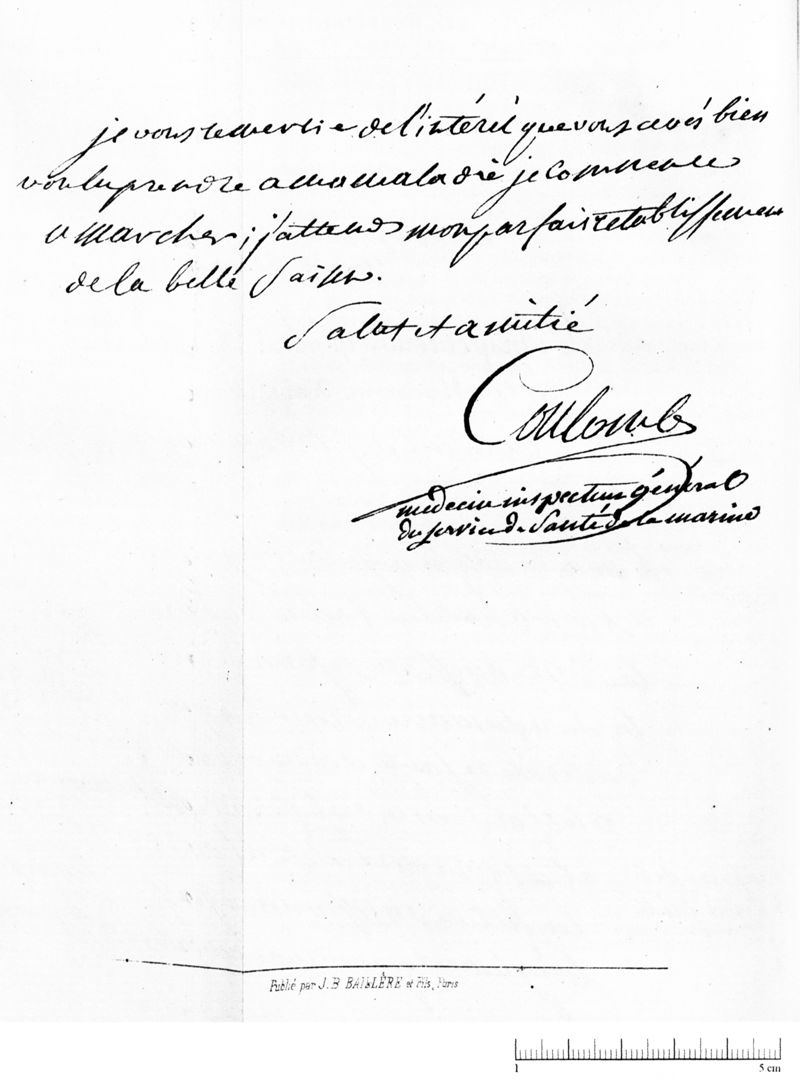 je vous remercie de l'intérêt que vous avés bien
voulu prendre a ma maladie je commence
a marcher; j'attends mon parfait retablissement
de la belle saison.
Salut et amitié
Coulomb
médecin inspecteur général
du service de Santé de la marine
Publié par J. B. BAILLÈRE et Fils, Paris
1 5 cm